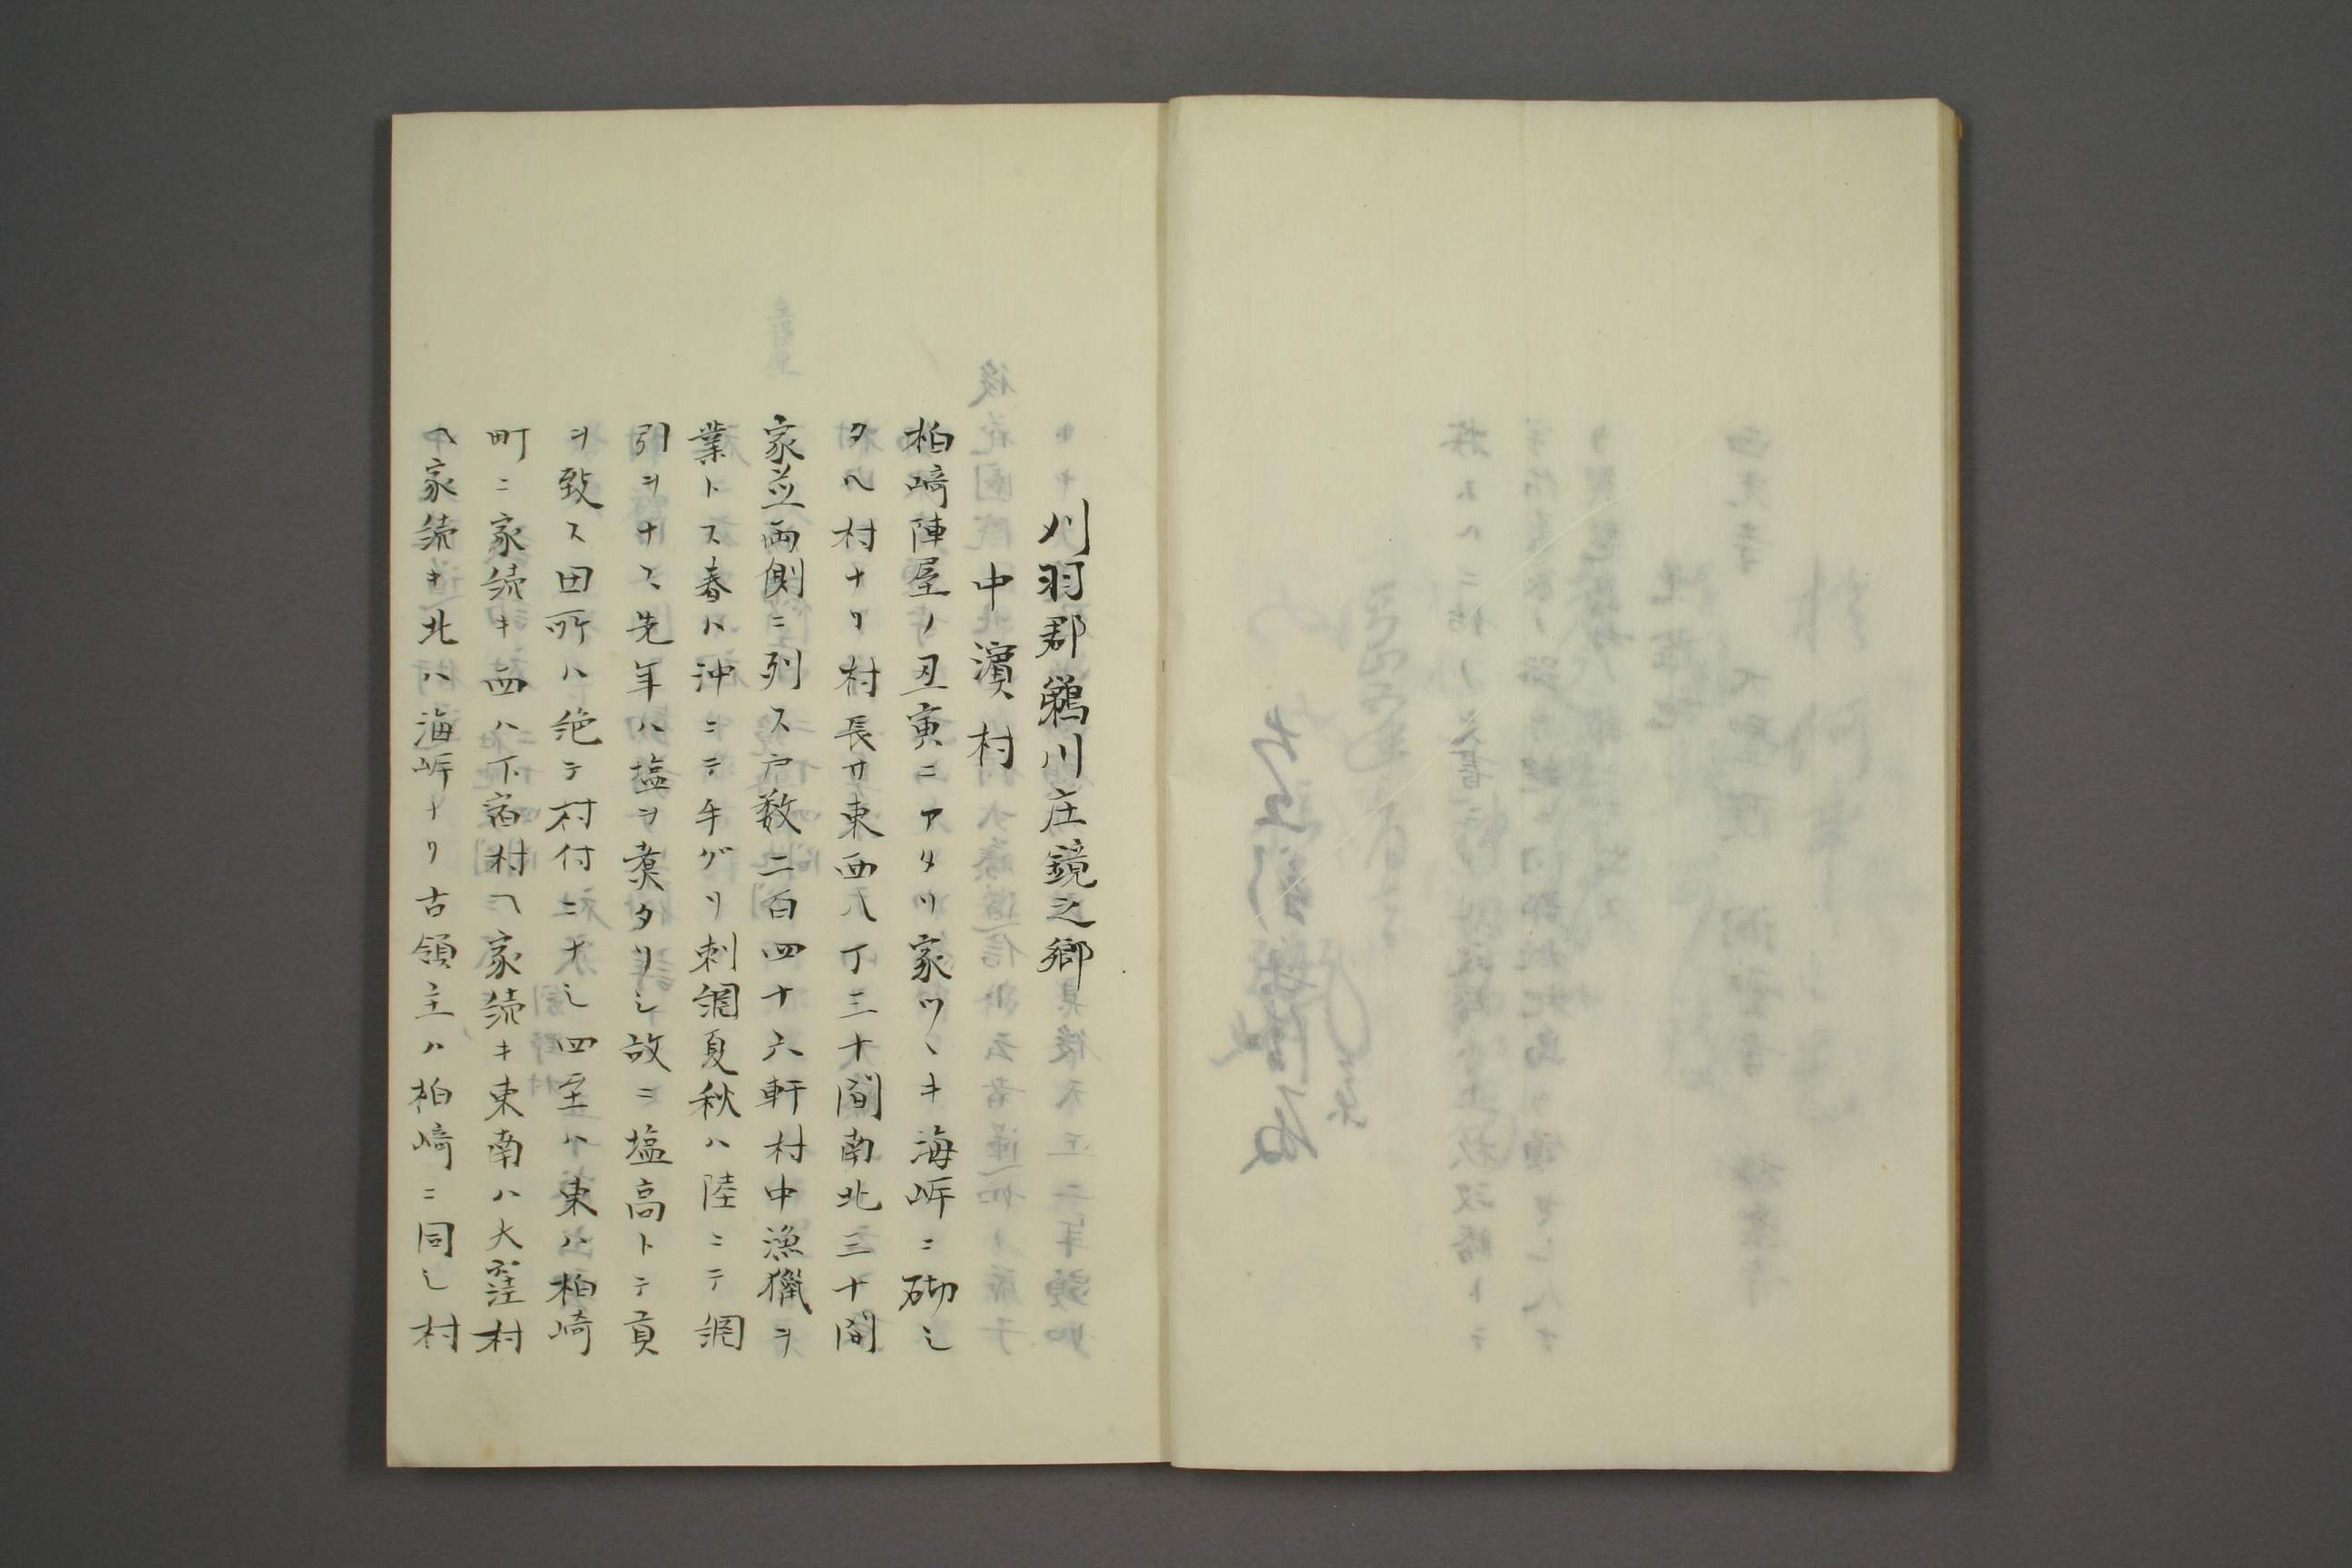 刈羽郡鵜川庄鏡之郷
中濱村
柏崎陣屋ノ丑寅ニアタリ家ツヽキ海岸ニ砌シ
タル村ナリ村長サ東西八丁三十間南北三十間
家並両側ニ列ス戸数二百四十六軒村中漁獵ヲ
業トス春ハ沖ニテ手グリ刺網夏秋ハ陸ニテ網
引ヲナス先年ハ塩ヲ煮タリシ故ニ塩高トテ貢
ヲ致ス田所ハ絶テ村付ニナシ四至ハ東ハ柏崎
町ニ家続キ西ハ下宿村ヘ家続キ東南ハ大窪村
ヘ家続キ北ハ海岸ナリ古領主ハ柏崎ニ同シ村